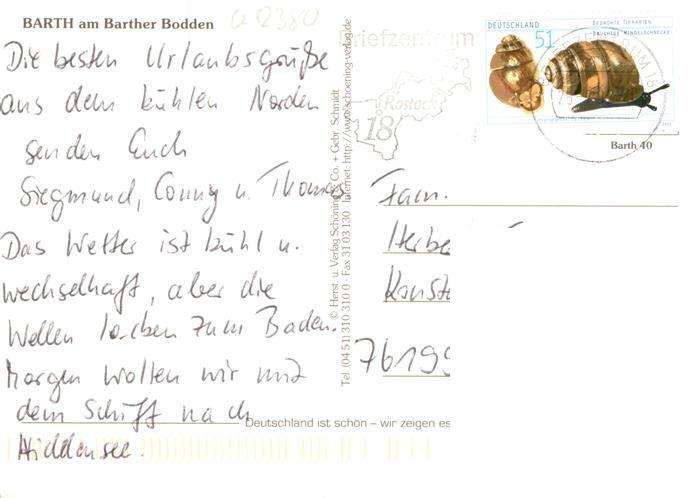 BARTH am Barther Bodden
a 2380
Die besten Urlaubsgrüße
aus dem kühlen Norden
senden Euch
Siegmund, Conny u. Thomas
Das Wetter ist kühl u.
wechselhaft, aber die
Wellen locken zum Baden.
Morgen wollen wir mit
dem Schiff nach
Hiddensee.
© Herst. u. Verlag Schöning & Co. + Gebr. Schmidt
Tel (04 51) 310 310 0 Fax 31 03 130 Internet: http://www.schoening-verlag.de
Briefzentrum
Rostock
18
DEUTSCHLAND
51
BEDROHTE TIERARTEN
BAUCHIGE WINDELSCHNECKE
Barth 40
Fam.
Herbe
Konst
76199
Deutschland ist schön – wir zeigen es